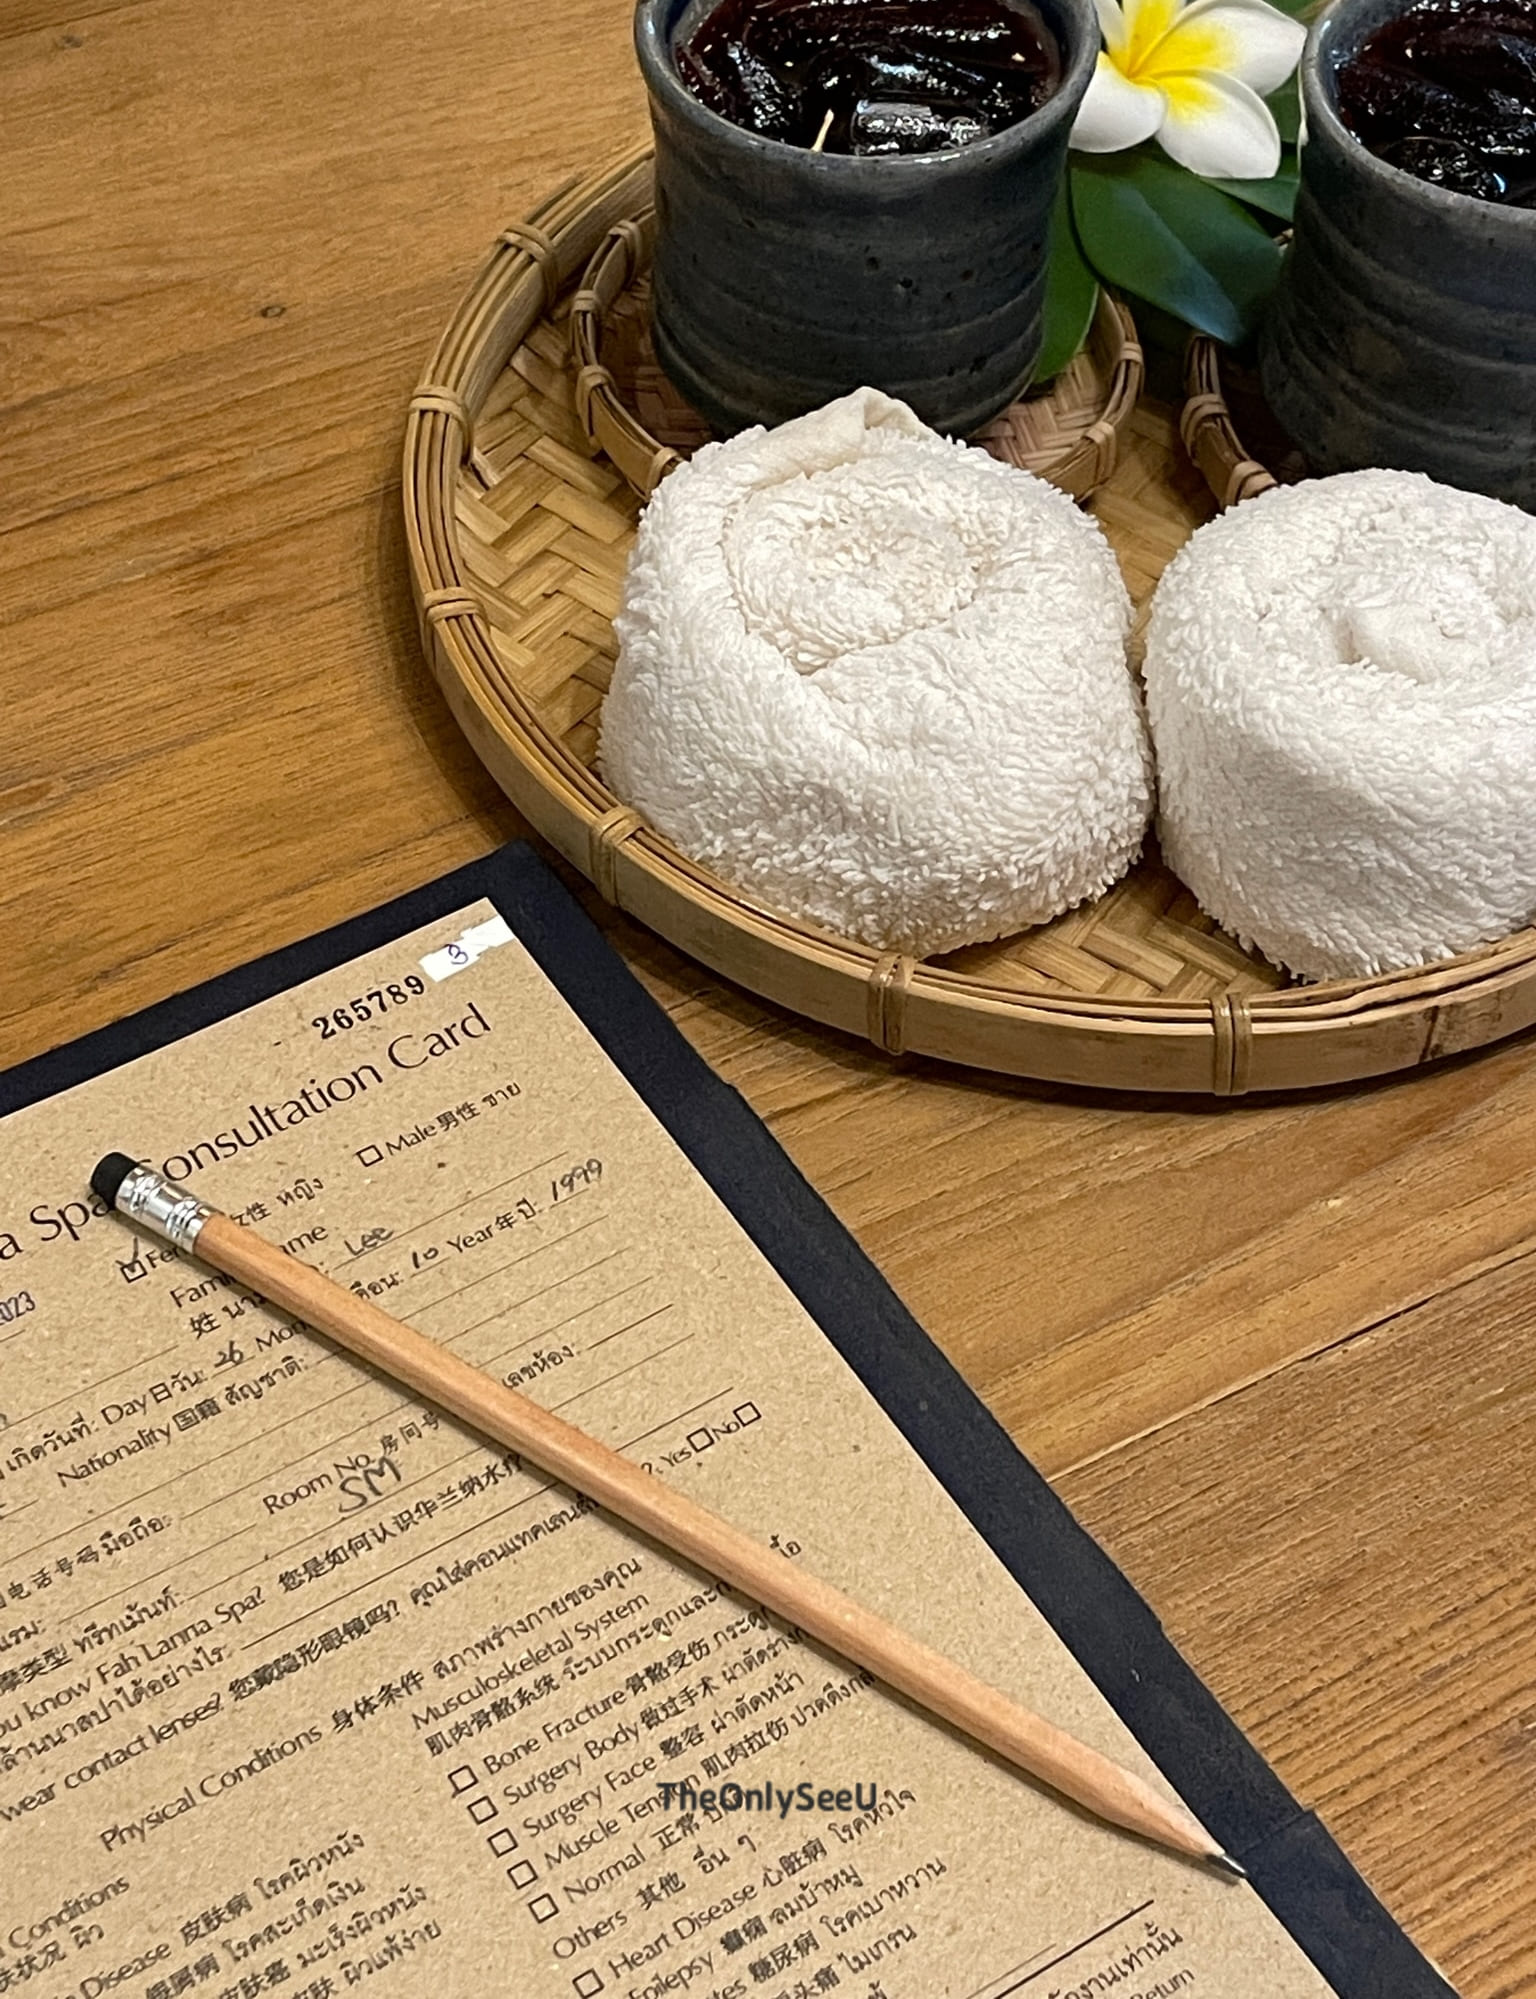 3
265789
a Spa Consultation Card
Male 男性 ชาย
女性 หญิง
Lee
023
姓
26
10 Year 年 ปี: 1999
เกิดวันที่: Day 日 วัน:
Nationality 国籍 สัญชาติ:
Room No. 房间号
เลขห้อง:
SM
电话号码 มือถือ:
摩类型 ทรีทเม้นท์:
ou know Fah Lanna Spa? 您是如何认识华兰纳水疗
ล้านนาสปาได้อย่างไร:
wear contact lenses? 您戴隐形眼镜吗? คุณใส่คอนแทคเลนส์
?: Yes No
Physical Conditions 身体条件 สภาพร่างกายของคุณ
Musculoskeletal System
肌肉骨骼系统 ระบบกระดูกและก
Bone Fracture 骨骼受伤 กระดู
Surgery Body 做过手术 ผ่าตัดร่างก
Surgery Face 整容 ผ่าตัดหน้า
Muscle Tension 肌肉拉伤 ปวดตึงกล
TheOnlySeeU
Normal 正常 ป
Others 其他 อื่น ๆ
Heart Disease 心脏病 โรคหัวใจ
Epilepsy 癫痫 ลมบ้าหมู
tes 糖尿病 โรคเบาหวาน
头痛 ไมเกรน
Conditions
肤状况 ผิว
Disease 皮肤病 โรคผิวหนัง
银屑病 โรคสะเก็ดเงิน
皮肤癌 มะเร็งผิวหนัง
皮肤 ผิวแพ้ง่าย
ักงานเท่านั้น
Return